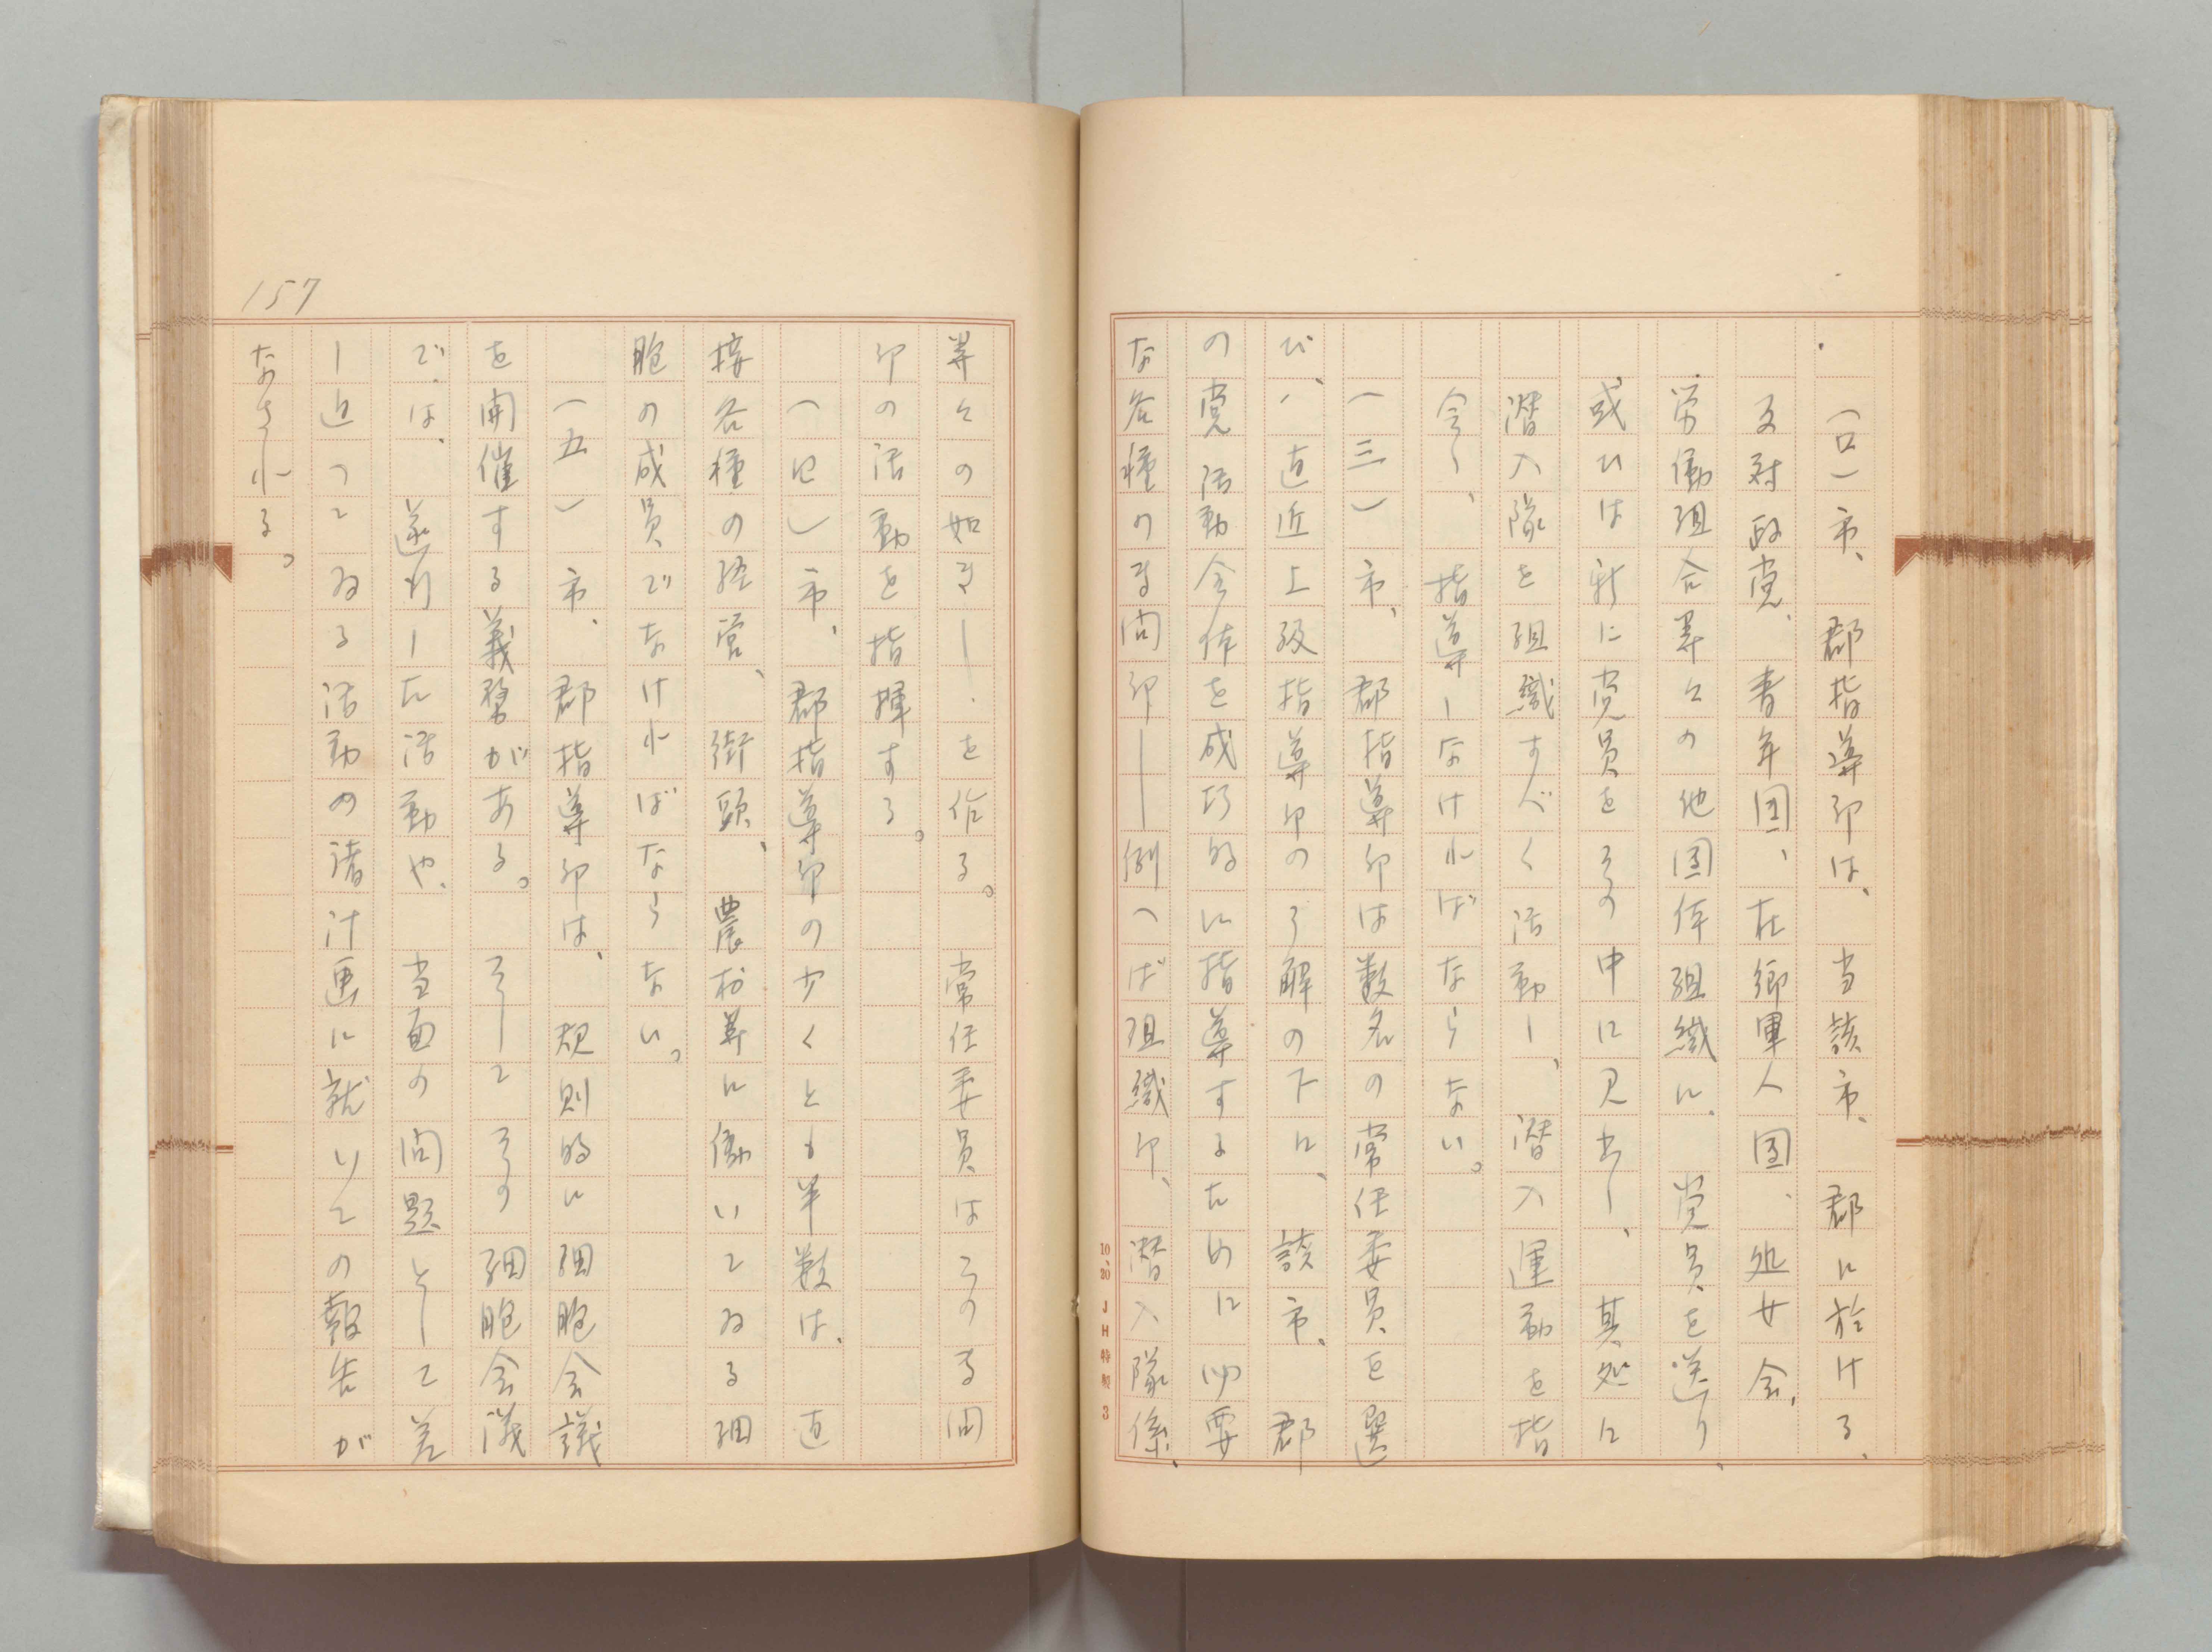 (ロ)市、郡指導部は、当該市、郡に於ける、
反対政党、青年団、在郷軍人団、処女会、
労働組合等々の他団体組織に、党員を送り、
或ひは新に党員をその中に見出し、其処に
潜入隊を組織すべく活動し、潜入運動を指
令し、指導しなければならない。
(三)市、郡指導部は数名の常任委員を選
び、直近上級指導部の了解の下に、該市、郡
の党活動全体を成功的に指導するために必要
な各種の専門部――例へば組織部、潜入隊係、
10,20 JH特製 3
等々の如き――を作る。常任委員はその専門
部の活動を指揮する。
(四)市、郡指導部の少くとも半数は、直
接各種の経営、街頭、農村等に働いてゐる細
胞の成員でなければならない。
(五)市、郡指導部は、規則的に細胞会議
を開催する義務がある。そしてその細胞会議
では、遂行した活動や、当面の問題として差
し迫つてゐる活動の諸計画に就いての報告が
なされる。
157